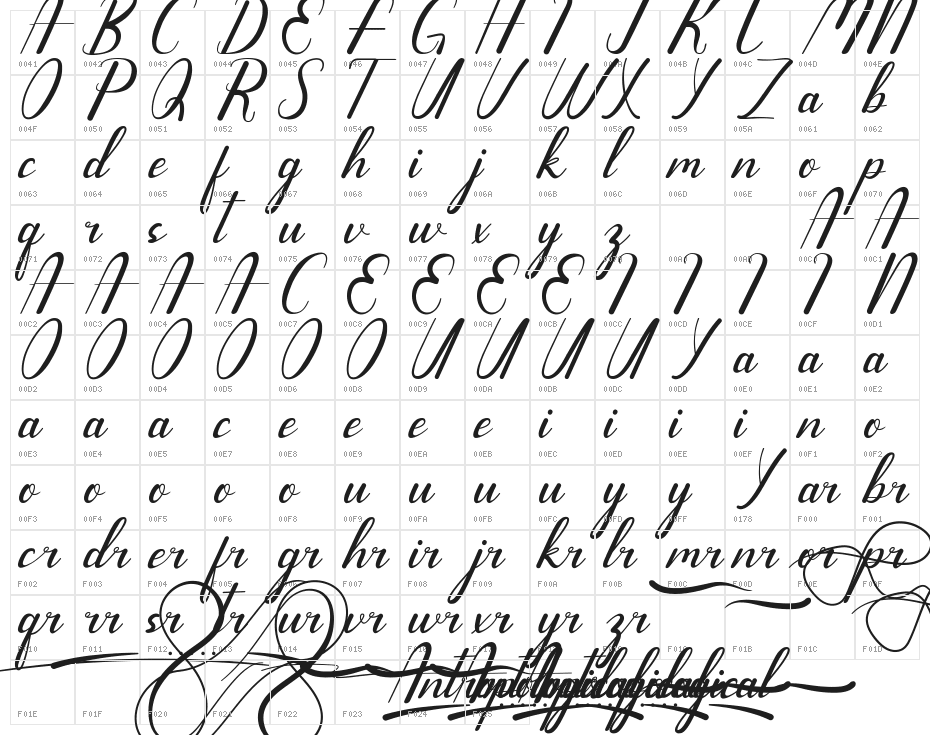 A B C D E F G H I J K L M N
0041 0042 0043 0044 0045 0046 0047 0048 0049 004A 004B 004C 004D 004E
O P Q R S T U V W X Y Z a b
004F 0050 0051 0052 0053 0054 0055 0056 0057 0058 0059 005A 0061 0062
c d e f g h i j k l m n o p
0063 0064 0065 0066 0067 0068 0069 006A 006B 006C 006D 006E 006F 0070
q r s t u v w x y z A A
0071 0072 0073 0074 0075 0076 0077 0078 0079 00C1
A A A A C E E E E I I I I N
00C2 00C3 00C4 00C5 00C7 00C8 00C9 00CA 00CB 00CC 00CD 00CE 00CF 00D1
O O O O O O U U U U Y a a a
00D2 00D3 00D4 00D5 00D6 00D8 00D9 00DA 00DB 00DC 00DD 00E0 00E1 00E2
a a a c e e e e i i i i n o
00E3 00E4 00E5 00E7 00E8 00E9 00EA 00EB 00EC 00ED 00EE 00EF 00F1 00F2
o o o o o u u u u y y Y ar br
00F3 00F4 00F5 00F6 00F8 00F9 00FA 00FB 00FC 00FD 00FF 0178 F000 F001
cr dr er fr gr hr ir jr kr lr mr nr or pr
F002 F003 F004 F005 F006 F007 F008 F009 F00A F00B F00C F00D F00E F00F
qr rr sr tr ur vr wr xr yr zr
F010 F011 F012 F013 F014 F015 F016 F017 F018 F019 F01A F01B F01C F01D
F01E F01F F020 F021 F022 F023 F024 F025